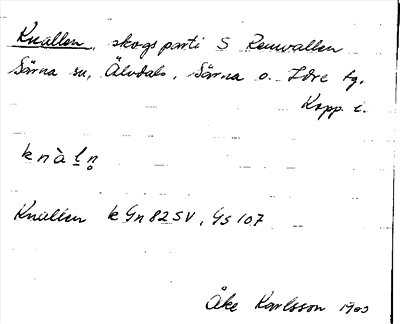 Knallen, skogsparti S Renvallen
Särna sn, Älvdals, Särna o. Idre tg.
Kopp. l.
knàln̥
Knallen k Gn 82 SV, Gs 107
Åke Karlsson